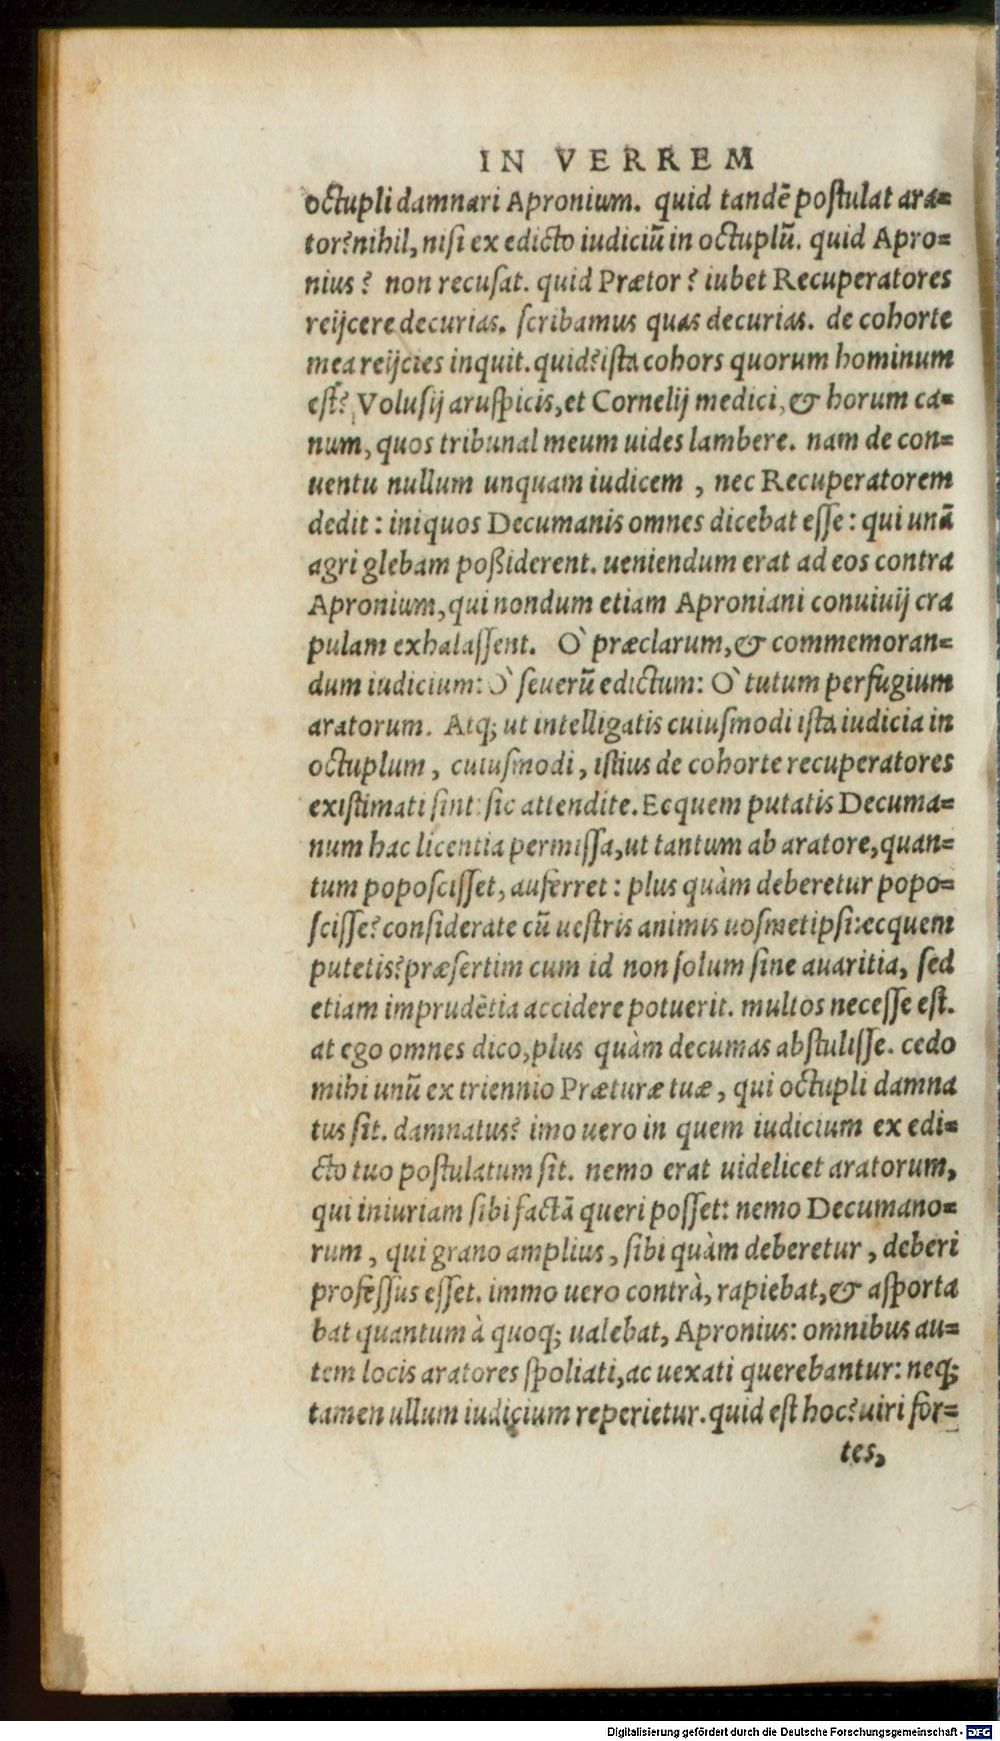 IN VERREM
octupli damnari Apronium. quid tandē postulat ara=
tor? nihil, nisi ex edicto iudiciū in octuplū. quid Apro=
nius? non recusat. quid Prætor? iubet Recuperatores
reijcere decurias. scribamus quas decurias. de cohorte
mea reijcies inquit. quid? ista cohors quorum hominum
est? Volusij aruspicis, et Cornelij medici, & horum ca=
num, quos tribunal meum uides lambere. nam de con=
uentu nullum unquam iudicem, nec Recuperatorem
dedit: iniquos Decumanis omnes dicebat esse: qui unā
agri glebam poßiderent. ueniendum erat ad eos contra
Apronium, qui nondum etiam Aproniani conuiuij cra
pulam exhalassent. Ò præclarum, & commemoran=
dum iudicium: Ò seuerū edictum: Ò tutum perfugium
aratorum. Atq; ut intelligatis cuiusmodi ista iudicia in
octuplum, cuiusmodi, istius de cohorte recuperatores
existimati sint: sic attendite. Ecquem putatis Decuma=
num hac licentia permissa, ut tantum ab aratore, quan=
tum poposcisset, auferret: plus quàm deberetur popo=
scisse? considerate cū uestris animis uosmetipsi: ecquem
putetis? præsertim cum id non solum sine auaritia, sed
etiam imprudētia accidere potuerit. multos necesse est.
at ego omnes dico, plus quàm decumas abstulisse. cedo
mihi unū ex triennio Præturæ tuæ, qui octupli damna
tus sit. damnatus? imo uero in quem iudicium ex edi=
cto tuo postulatum sit. nemo erat uidelicet aratorum,
qui iniuriam sibi factā queri posset: nemo Decumano=
rum, qui grano amplius, sibi quàm deberetur, deberi
professus esset. immo uero contrà, rapiebat, & asporta
bat quantum à quoq; ualebat, Apronius: omnibus au=
tem locis aratores spoliati, ac uexati querebantur: neq;
tamen ullum iudicium reperietur. quid est hoc? uiri for=
tes,
Digitalisierung gefördert durch die Deutsche Forschungsgemeinschaft - DFG